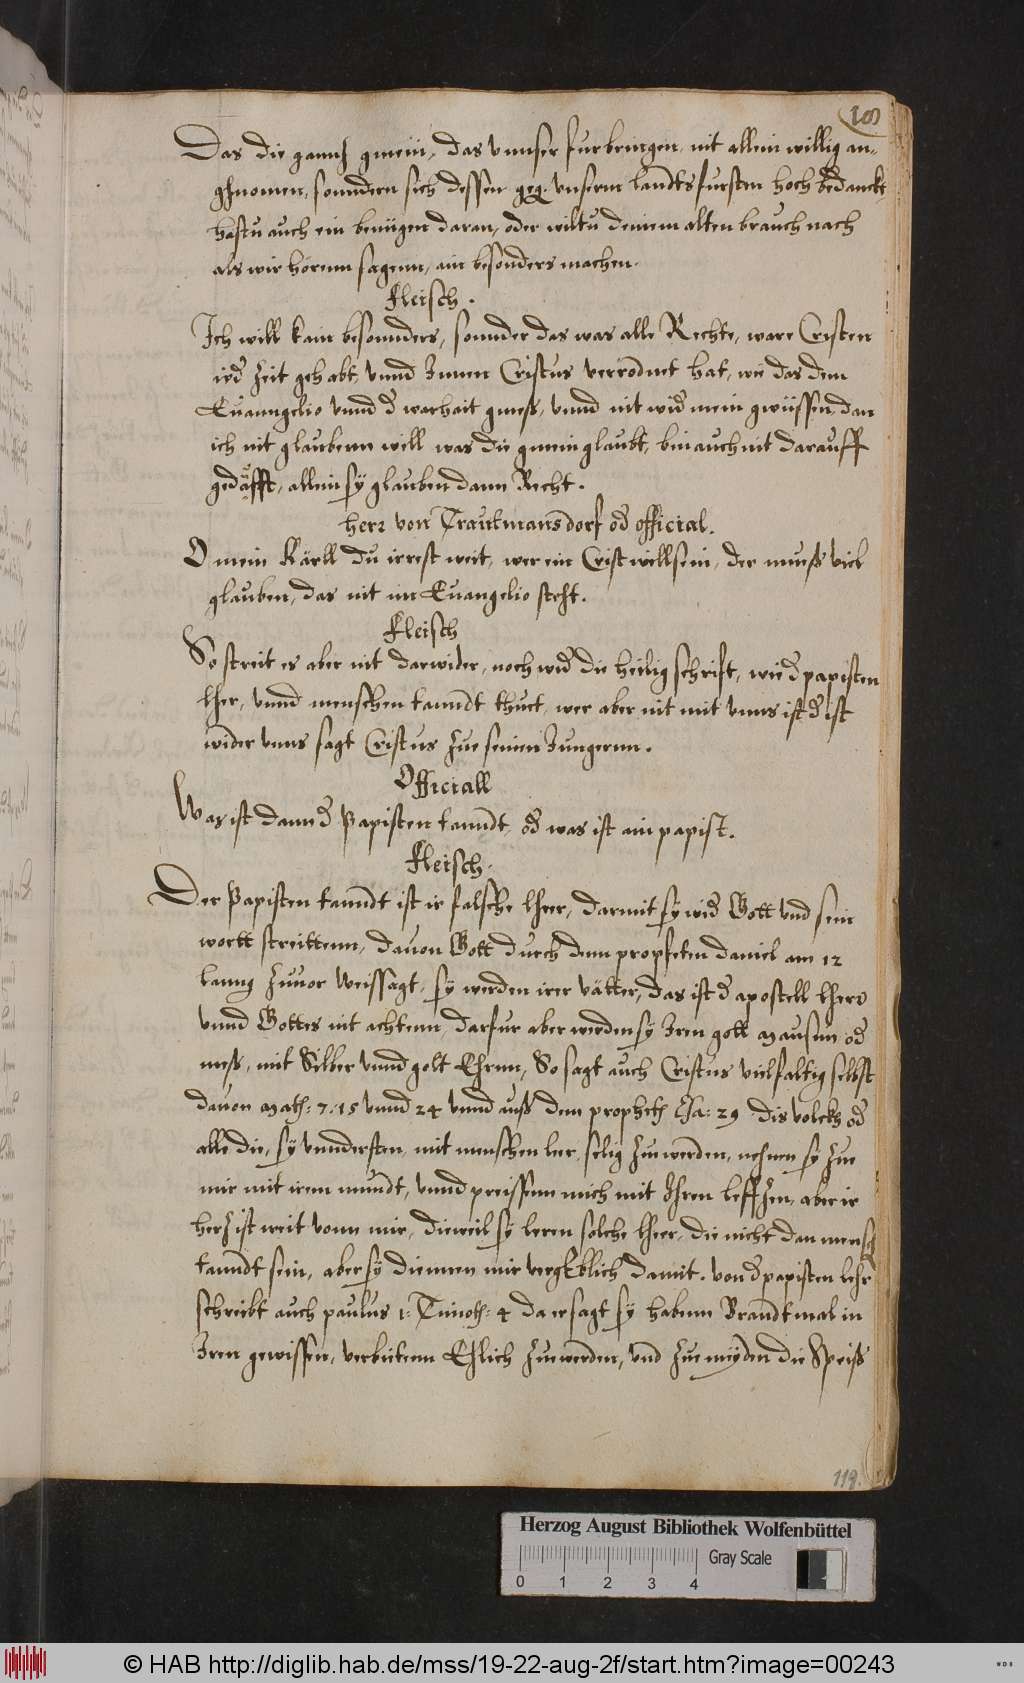 Das die gannz gmein, das vnnser furbringen, nit allein willig an-
ghnomen, sonndern sich dessen geg. vnserm landtsfursten hoch bedanckt,
hastu auch ein benügen daran, oder wiltu deinem alten brauch nach
als wir hörenn sagenn, ain besonders machen.
Fleisch.
Ich will kain besonnders, sonnder das was alle Rechte, ware Cristen
ied Zeit gehabt, vnnd Innen Cristus verrodnet hat, wie das dem
Euanngelio vnnd d warhait gmeß, vnnd nit wid mein gwüssen, dan
ich nit glaubenn will was die gmein glaubt, bin auch nit darauff
gedäfft, allein sy glauben dann Recht.
herr von Trautmansdorf od official.
O mein Kärll du irrest weit, wer ein Crist will sein, der muuß viel
glauben, das nit im Euangelio steht.
Fleisch
So streit es aber nit darwider, noch wid die heilig schrift, wie d papisten
lher, vnnd menschen tanndt thuet, wer aber nit mit vnns ist d ist
wider vnns sagt Cristus Zue seinen Jungernn.
Officiall
Was ist dann d Papisten tanndt, od was ist ain papist.
Fleisch.
Der Papisten tanndt ist ir falsche lheer, darmit sy wid Gott vnd sein
wortt streittenn, dauon Gott durch denn propheten Daniel am 12
lanng Zuuor Weissagt, sy werden irer vätter, das ist d apostell lhere
vnnd Gottes nit achtenn, darfur aber werden sy Iren gott Mausim od
meß, mit Silber vnnd golt Ehrnn, So sagt auch Cristus vielfaltig selbst
dauon Math: 7: 15 vnnd 24 vnnd auß dem propheth Esa: 29 dis volckh od
alle die, sy vnndersten, mit menschen leer, selig Zuewerden, nehnen sy Zue
mir mit irem mundt, vnnd preissenn mich mit Ihren leffzen, aber ir
herz ist weit vonn mir, dieweil sy leren solche lheer, die nicht dan mensch
tanndt sein, aber sy diennen mir vergeblich damit. von d papisten lehr
schreibt auch paulus 1: Timoth: 4 da er sagt sy habenn Brandtmal in
Iren gewissen, verbietenn Ehlich Zuewerden, vnd Zue meyden die Speiß
119.
Herzog August Bibliothek Wolfenbüttel
Gray Scale
0 1 2 3 4
© HAB http://diglib.hab.de/mss/19-22-aug-2f/start.htm?image=00243